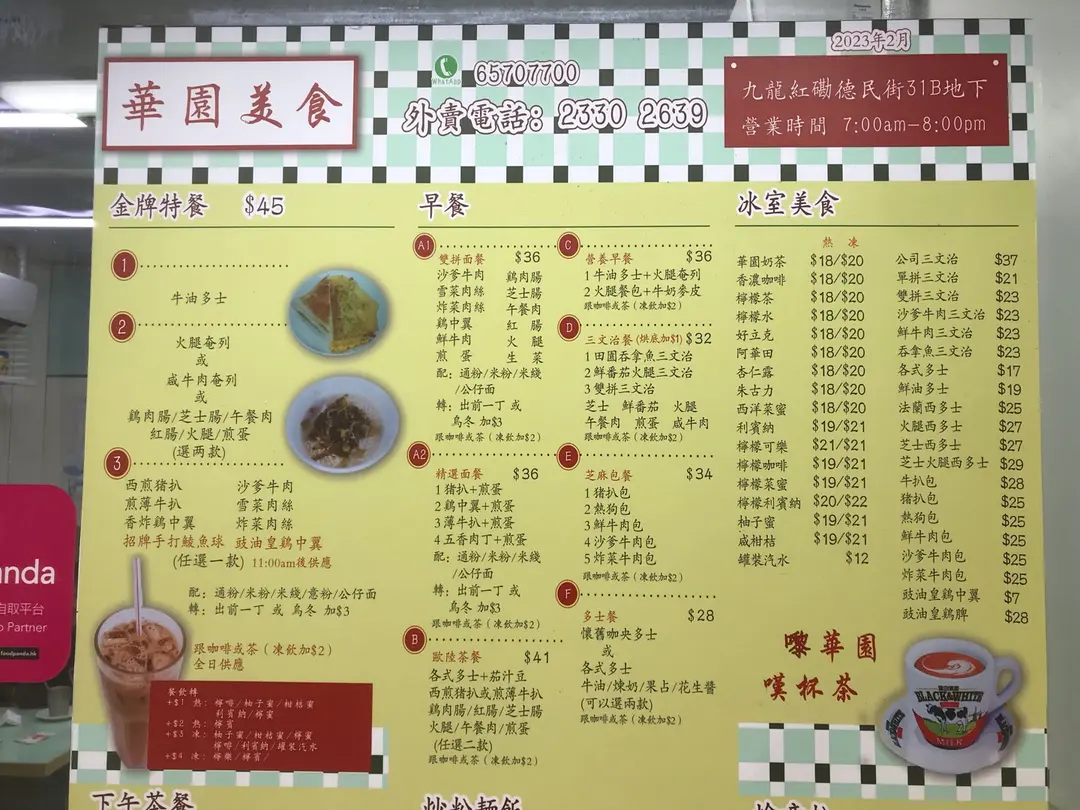 2023年2月
華園美食
WhatsApp
65707700
外賣電話: 2330 2639
九龍紅磡德民街31B地下
營業時間 7:00am-8:00pm
金牌特餐 $45
1
牛油多士
2
火腿奄列
或
咸牛肉奄列
或
鷄肉腸/芝士腸/午餐肉
紅腸/火腿/煎蛋
(選两款)
3
西煎猪扒 沙爹牛肉
煎薄牛扒 雪菜肉絲
香炸鷄中翼 炸菜肉絲
招牌手打鯪魚球 豉油皇鷄中翼
(任選一款) 11:00am後供應
配: 通粉/米粉/米綫/意粉/公仔面
轉: 出前一丁 或 烏冬 加$3
跟咖啡或茶(凍飲加$2)
全日供應
餐飲轉
+$1 熱: 檸啡/柚子蜜/柑桔蜜
利賓納/檸蜜
+$2 熱: 檸賓
+$3 凍: 柚子蜜/柑桔蜜/檸蜜
檸啡/利賓納/罐裝汽水
+$4 凍: 檸樂/檸賓/
下午茶餐
早餐
A1
雙拼面餐 $36
沙爹牛肉 鷄肉腸
雪菜肉絲 芝士腸
炸菜肉絲 午餐肉
鷄中翼 紅腸
鮮牛肉 火腿
煎蛋 生菜
配: 通粉/米粉/米綫
/公仔面
轉: 出前一丁 或
烏冬 加$3
跟咖啡或茶(凍飲加$2)
A2
精選面餐 $36
1 猪扒+煎蛋
2 鷄中翼+煎蛋
3 薄牛扒+煎蛋
4 五香肉丁+煎蛋
配: 通粉/米粉/米綫
/公仔面
轉: 出前一丁 或
烏冬 加$3
跟咖啡或茶(凍飲加$2)
B
歐陸茶餐 $41
各式多士+茄汁豆
西煎猪扒或煎薄牛扒
鷄肉腸/紅腸/芝士腸
火腿/午餐肉/煎蛋
(任選二款)
跟咖啡或茶(凍飲加$2)
炒粉麵飯
C
營養早餐 $36
1 牛油多士+火腿奄列
2 火腿餐包+牛奶麥皮
跟咖啡或茶(凍飲加$2)
D
三文治餐(烘底加$1) $32
1 田園吞拿魚三文治
2 鮮番茄火腿三文治
3 雙拼三文治
芝士 鮮番茄 火腿
午餐肉 煎蛋 咸牛肉
跟咖啡或茶(凍飲加$2)
E
芝麻包餐 $34
1 猪扒包
2 熱狗包
3 鮮牛肉包
4 沙爹牛肉包
5 炸菜牛肉包
跟咖啡或茶(凍飲加$2)
F
多士餐 $28
懷舊咖央多士
或
各式多士
牛油/煉奶/果占/花生醬
(可以選兩款)
跟咖啡或茶(凍飲加$2)
冰室美食
熱 凍
華園奶茶 $18/$20
香濃咖啡 $18/$20
檸檬茶 $18/$20
檸檬水 $18/$20
好立克 $18/$20
阿華田 $18/$20
杏仁露 $18/$20
朱古力 $18/$20
西洋菜蜜 $18/$20
利賓納 $19/$21
檸檬可樂 $21/$21
檸檬咖啡 $19/$21
檸檬菜蜜 $19/$21
檸檬利賓納 $20/$22
柚子蜜 $19/$21
咸柑桔 $19/$21
罐裝汽水 $12
公司三文治 $37
單拼三文治 $21
雙拼三文治 $23
沙爹牛肉三文治 $23
鮮牛肉三文治 $23
吞拿魚三文治 $23
各式多士 $17
鮮油多士 $19
法蘭西多士 $25
火腿西多士 $27
芝士西多士 $27
芝士火腿西多士 $29
牛扒包 $28
猪扒包 $25
熱狗包 $25
鮮牛肉包 $25
沙爹牛肉包 $25
炸菜牛肉包 $25
豉油皇鷄中翼 $7
豉油皇鷄髀 $28
嚟華園
嘆杯茶
BLACK&WHITE
MILK
anda
自取平台
Partner
foodpanda.hk